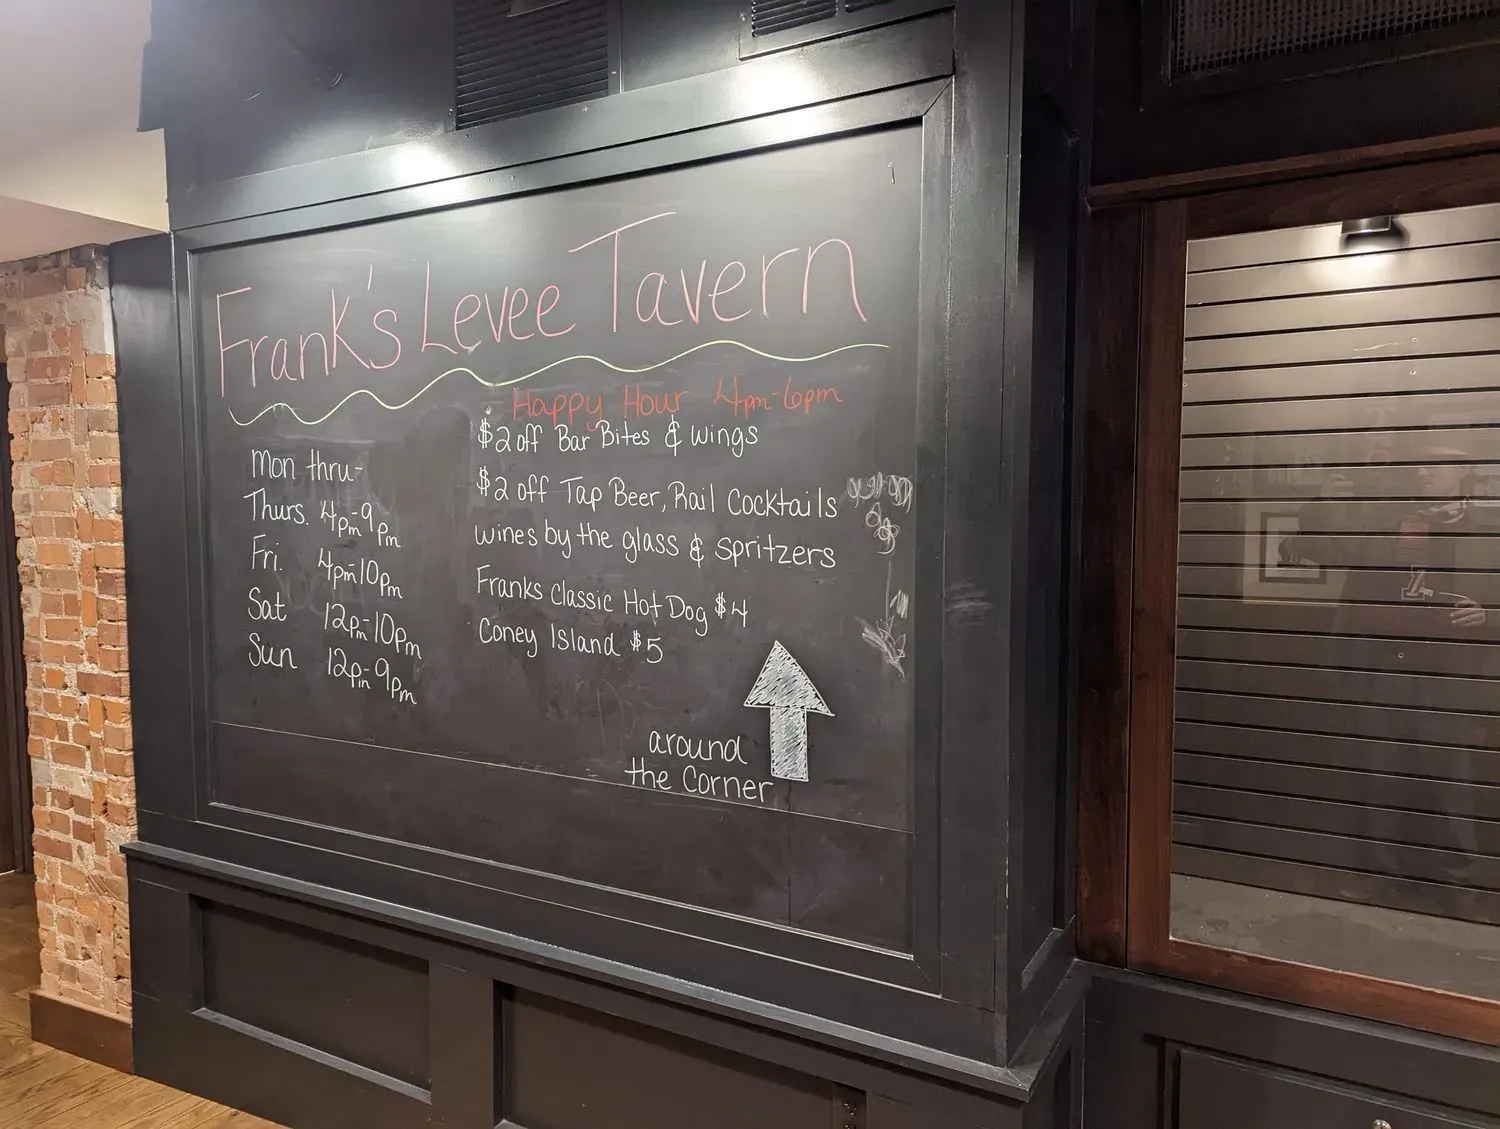 Frank's Levee Tavern
Happy Hour 4pm-6pm
$2 off Bar Bites & wings
$2 off Tap Beer, Rail Cocktails
wines by the glass & Spritzers
Franks Classic Hot Dog $4
Coney Island $5
Mon thru-
Thurs. 4pm-9pm
Fri. 4pm-10pm
Sat 12pm-10pm
Sun 12pm-9pm
around
the Corner